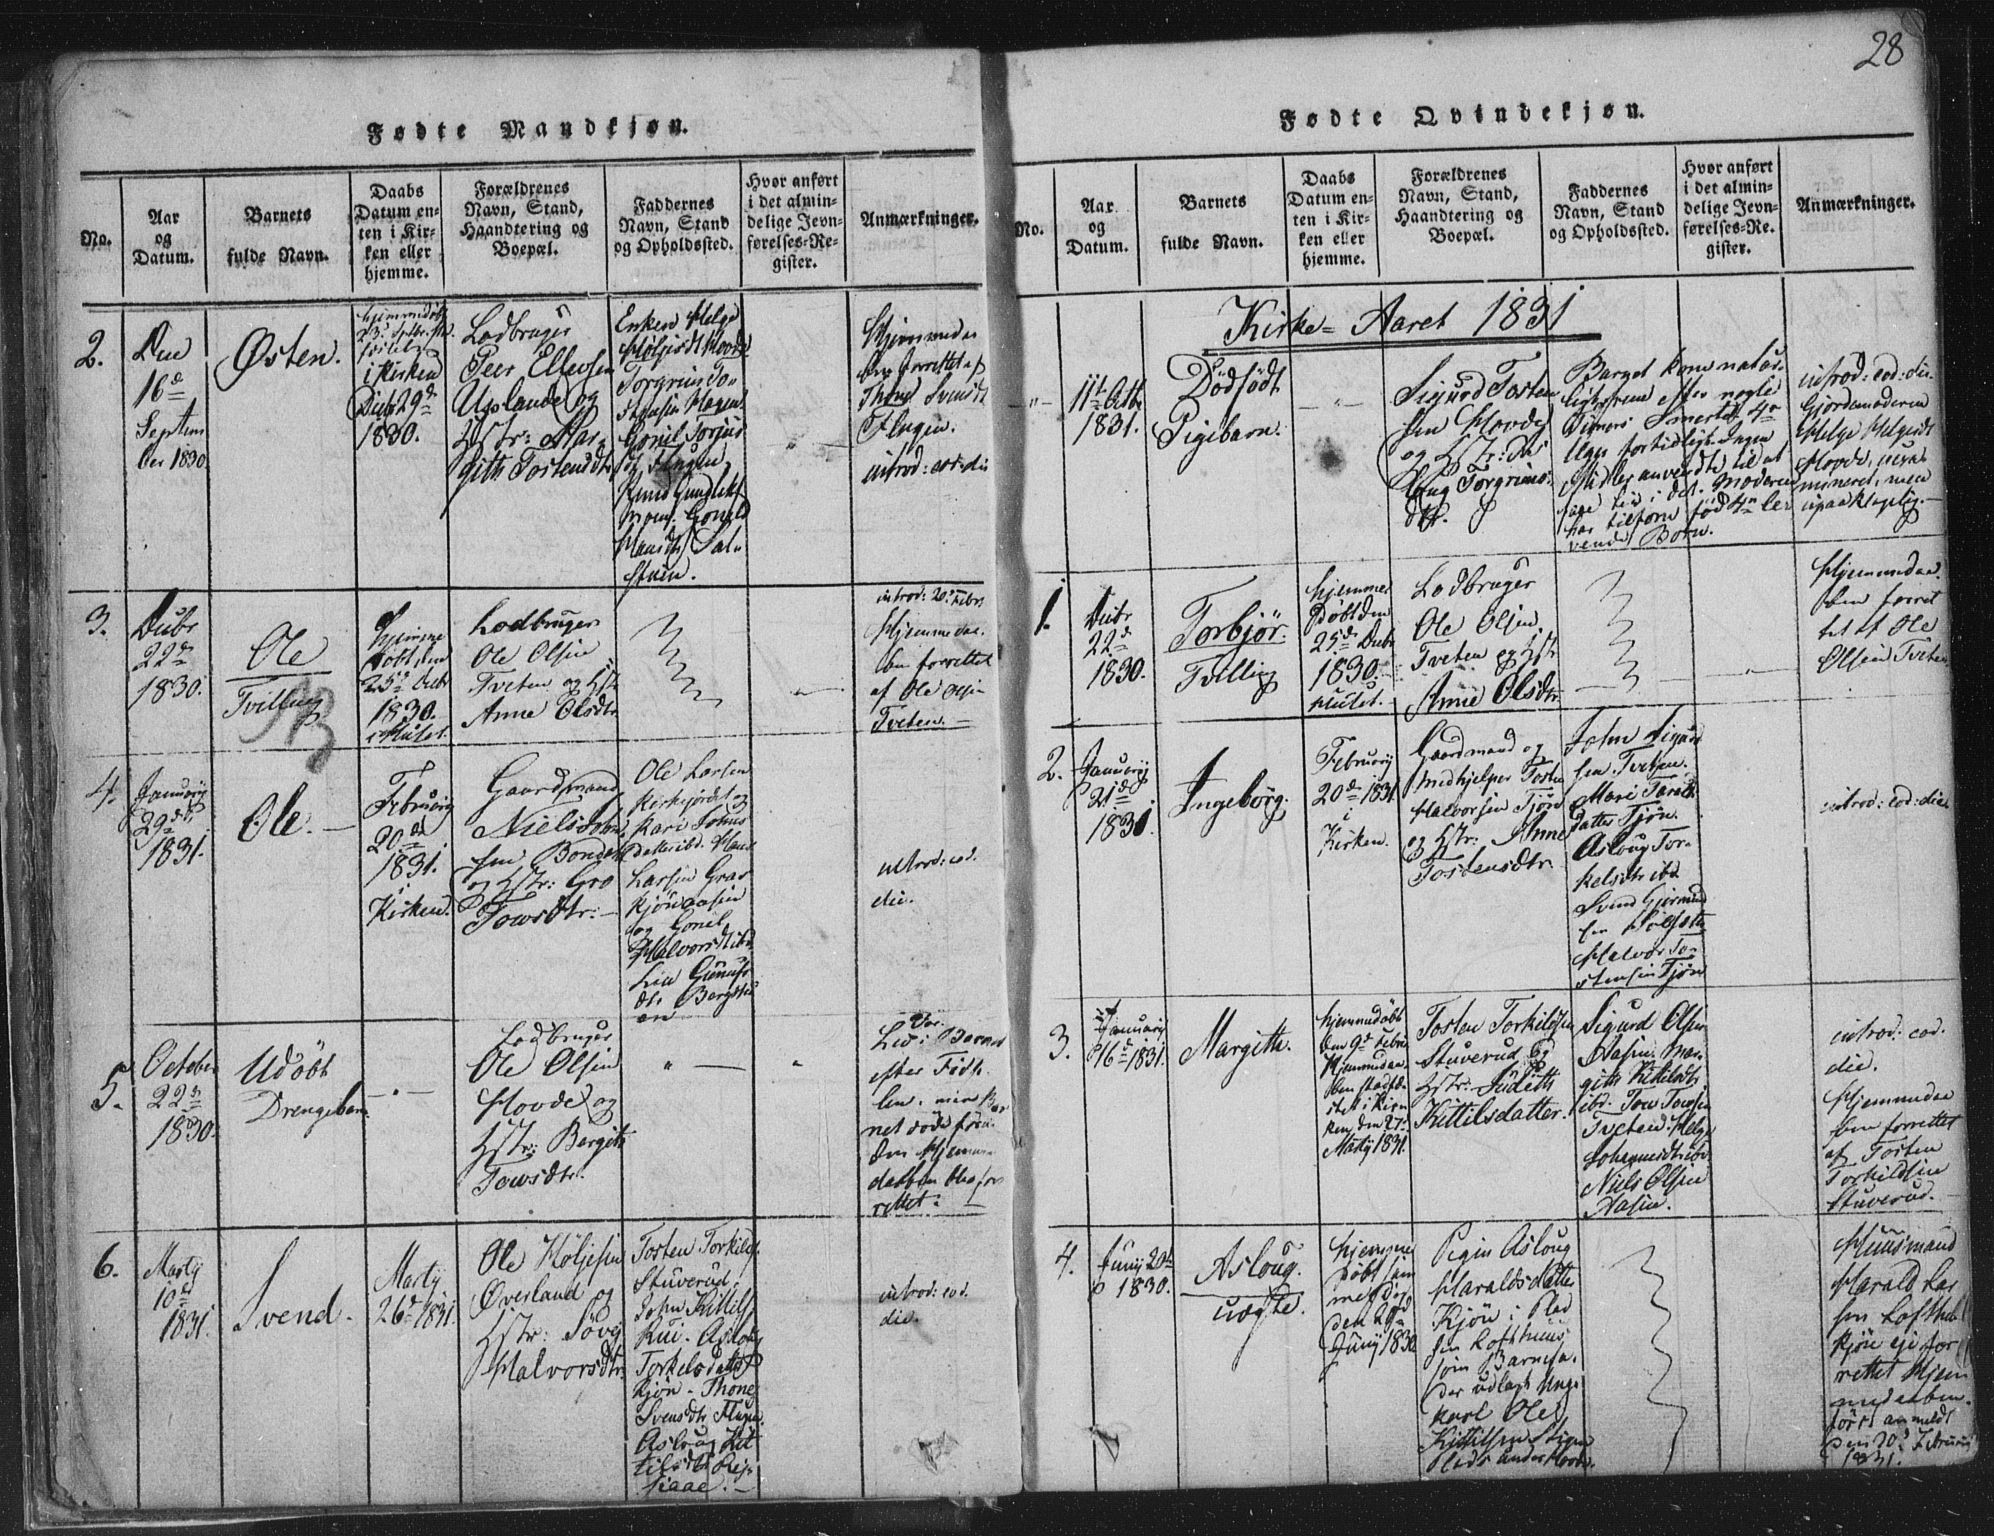 28
Fødte Mandkjøn.
No.
Aar
og
Datum.
Barnets
fulde Navn.
Daabs
Datum en-
ten i Kir-
ken eller
hjemme.
Forældrenes
Navn, Stand,
Haandtering og
Boepæl.
Faddernes
Navn, Stand
og Opholdssted.
Hvor anført
i det almin-
delige Jevn-
førelses-Re-
gister.
Anmærkninger.
2.
Den
16de
Septem
ber 1830
Østen.
i Kirken
29de
1830.
Lodbruger
Peer Ellevsen
Uglande og
Hstr: Mar-
gith Tostensdtr
Enken Helge
Torgrim To-
Gonil Torjus
stuen.
Hjemmeda
ben forrettet af
Thone Svensdt
Flugen.
introd: eod: die
3.
Debr
22de
1830.
Ole
Tvilling
Hjemme
døbt den
25de Debr
1830.
Lodbruger
Ole Olsen
Tveten og Hstr
Anne Olsdtr.
introd: 20de Febr
Hjemmedaa-
ben forrettet
af Ole Olsen
Tveten. —
4.
Januarij
29de
1831.
Ole. —
Februarij
20de
1831.
i
Kirken.
Gaardmand
Niels
sen Bonde
og Hstr: Gro
Towsdtr: —
Ole Larsen
Kirkejordet og
Kari Johns
datter ibd. Hans
Larsen Grav
kjøn Aasen
og Gonil
Halvorsdt ibd.
Liv Gunufs
dtr Bergstu
en —
introd: eod.
die.
5.
October
22de
1830.
Udøbt
Drengebarn
Lodbruger
Ole Olsen
Hovde og
Hstr: Bergith
Towsdtr.
Var
Liv i Barnet
efter Føds-
len. men Bar
net døde føren
den Hjemme
daaben blev for
rettet. —
6.
Martij
10de
1831.
Svend.
Martij
26de 1831.
Ole Høljesen
Øverland og
Hstr: Søvej
Halvorsdtr.
Tosten Torkilds
Stuverud.
John Kittils
Rui. Asloug
Torkelsdatter
Kjøn. Thone
Svensdtr Flugen.
Asloug Kit
tilsdtr Rei-
siaae. —
introd: eod.
die.
Fødte Qvindekjøn.
No.
Aar
og
Datum.
Barnets
fulde Navn.
Daabs
Datum en-
ten i Kir-
ken eller
hjemme.
Forældrenes
Navn, Stand,
Haandtering og
Boepæl.
Faddernes
Navn, Stand
og Opholdssted.
Hvor anført
i det almin-
delige Jevn-
førelses-Re-
gister.
Anmærkninger.
Kirke-Aaret 1831
11te Octbr
1831.
Dødfødt
Pigebarn.
Sigurd Tosten
sen Hovde
og Hstr: As
loug Torgrims-
dtr.
Barnet kom natur-
ligfrem efter nogle
Timers Smerter 4re
Uger fortidligt. Ingen
Midler anvendte til at
faae Liv i det. Moderen
har tilforn født 4re le-
vende Børn.
introd: eod: die.
Gjordemoderen
Helge Helgesdt
Hovde, uexa-
mineret, men
upaaklagelig. —
1.
Debr
22de
1830.
Torbjør.
Tvilling
Hjemme
døbt den
25de Debr
1830.
Lodbruger
Ole Olsen
Tveten og Hstr
Anne Olsdtr.
Hjemmedaa-
ben forret
tet af Ole
Olsen Tveten.
2.
Januarij
21de
1831.
Ingeborg.
Februarij
20de 1831
i
Kirken.
Gaardmand og
Medhjelper Tosten
Halvorsen Tjøn
og Hstr: Anne
Tostensdtr.
John Sigurd
sen Tveten.
Mari Taralds
datter Tjøn.
Asloug Tor-
kelsdtr ibd.
Svend Gjermund
sen
Halvor To-
stensen Tjøn
introd: eod: die
3.
Januarij
16de 1831.
Margith.
Hjemmedøbt
den 9de Febr.
Hjemmedaa-
ben stadfæ-
stet i Kir-
ken den 27de
Martij 1831.
Tosten Torkildsen
Stuverud og
Hstr: Judith
Kittilsdatter.
Sigurd Olsen
Aasen. Mar-
gith Kittilsdtr
ibd. Tow Towsen
Tveten. Helge
Johannesdtr ibd.
Niels Olsen
Aasen.
introd: eod.
die.
Hjemmedaa
ben forrettet
af Tosten
Torkildsen
Stuverud. —
4.
Junij 20de
1830.
Asloug.
uægte.
Hjemme
døbt
den 29de
Junij 1830
Pigen Asloug
Haraldsdatter
Kjøn
som Barnefa-
der udlagt Ung-
karl Ole
Kittilsen
under Hovde.
Huusmand
Harald Lar
sen Lofthuus
Kjøn ejer for
rettet Hjem
medaaben.
først anmeldt
den 20de Februarij
1831.